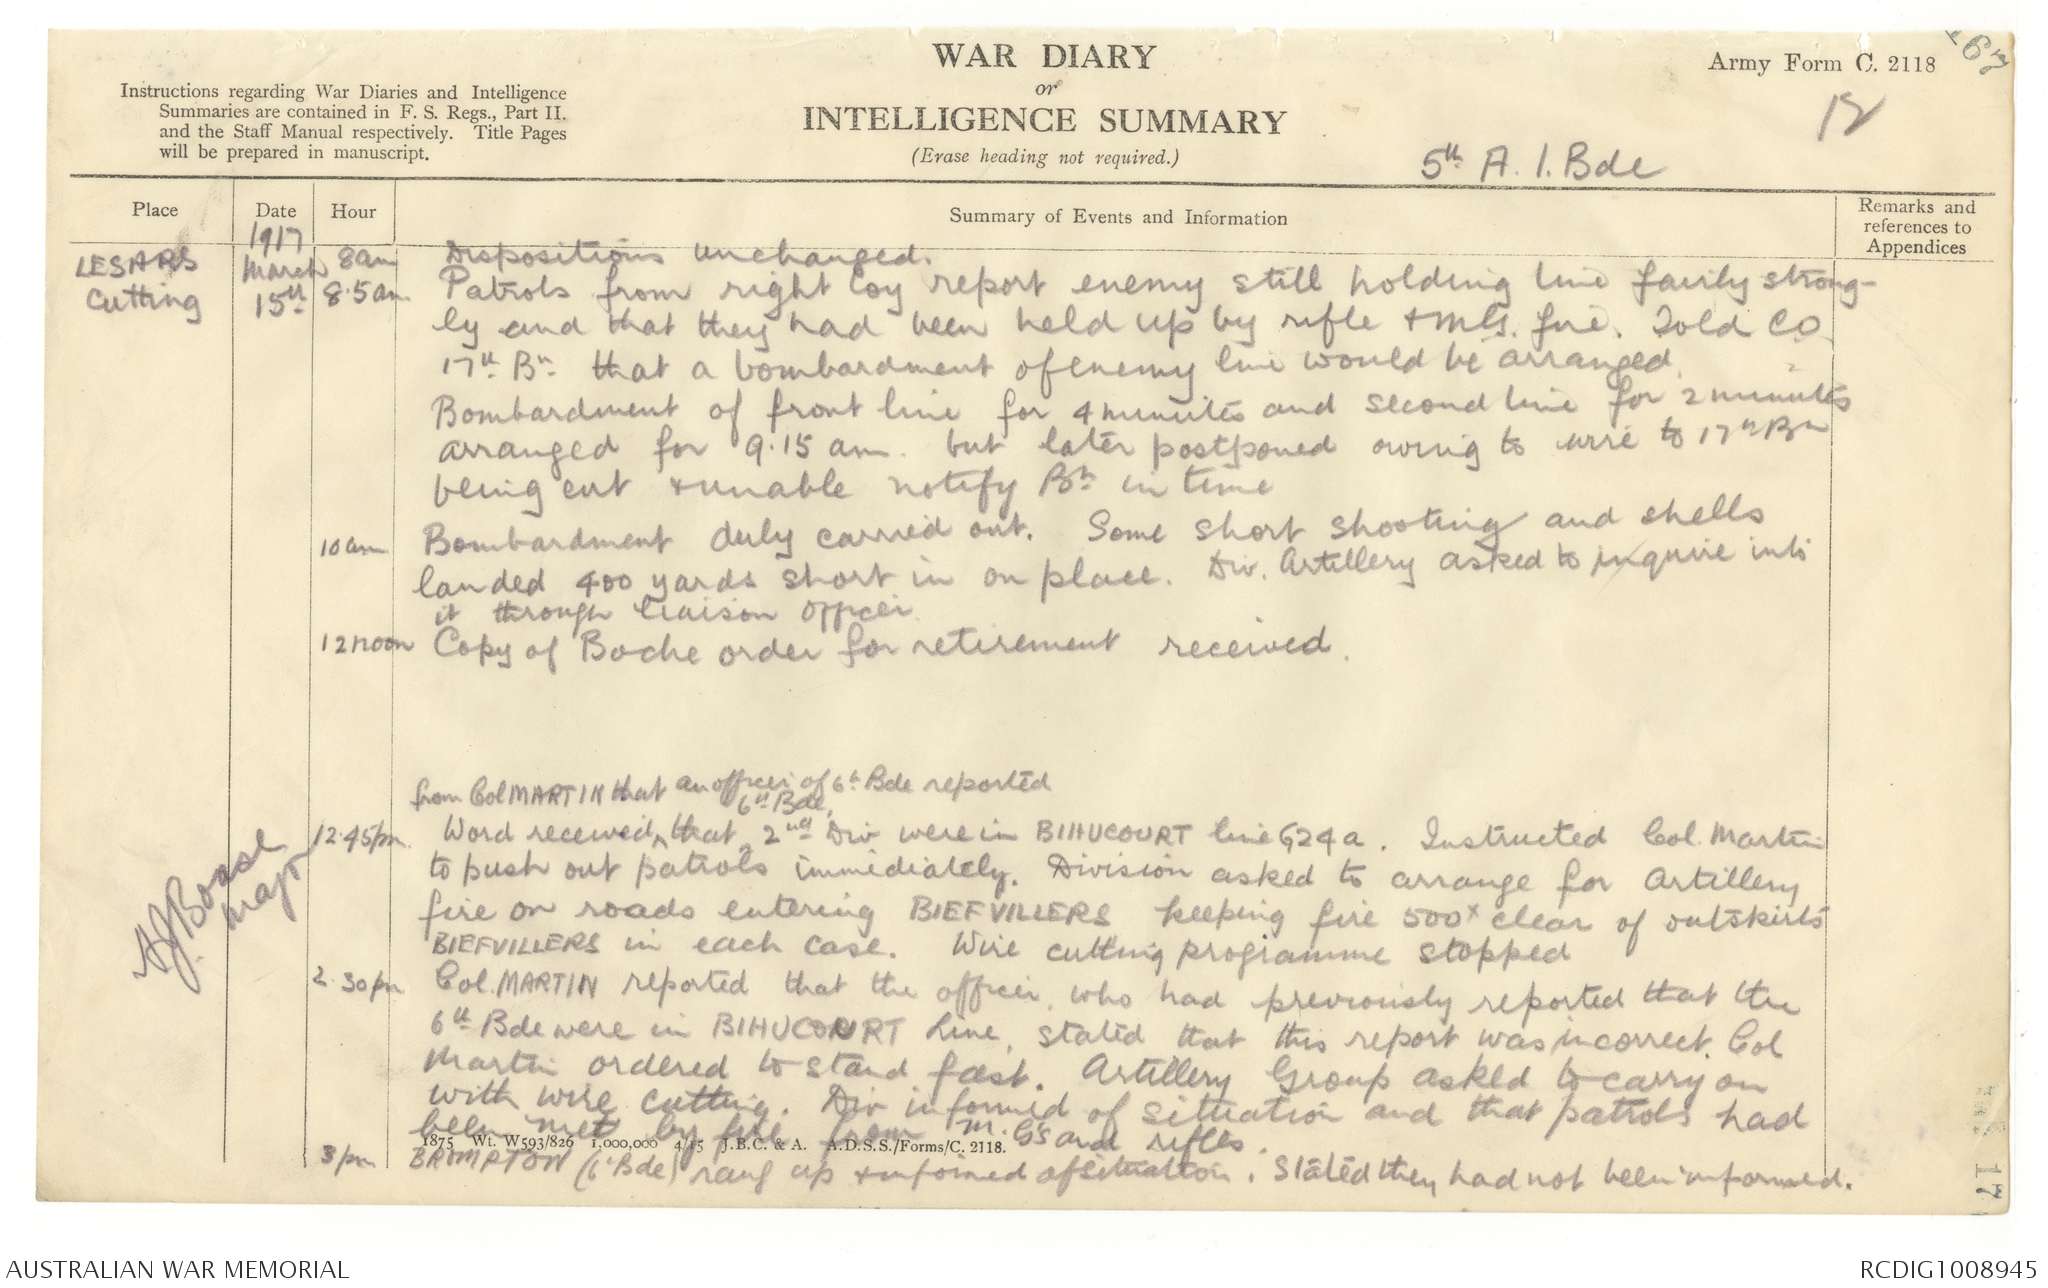 167
WAR DIARY
or
INTELLIGENCE SUMMARY
(Erase heading not required.)
Army Form C. 2118
12
Instructions regarding War Diaries and Intelligence
Summaries are contained in F. S. Regs., Part II.
and the Staff Manual respectively. Title Pages
will be prepared in manuscript.
5th A. I. Bde
Place Date Hour Summary of Events and Information Remarks and
references to
Appendices
1917
LESARS March 8am Dispositions unchanged.
Cutting 15th 8.5am Patrols from right Coy report enemy still holding line fairly strong-
ly and that they had been held up by rifle & M.G. fire. Told CO
17th Bn that a bombardment of enemy line would be arranged.
Bombardment of front line for 4 minutes and second line for 2 minutes
arranged for 9.15 am. but later postponed owing to wire to 17th Bn
being cut & unable notify Bn in time
10am Bombardment duly carried out. Some short shooting and shells
landed 400 yards short in on place. Div. Artillery asked to inquire into
it through liaison officer.
12 noon Copy of Boche order for retirement received.
from Col MARTIN that an officer of 6th Bde reported
6th Bde,
12.45pm. Word received ^ that ^ 2nd Div were in BIHUCOURT line G24a. Instructed Col. Martin
to push out patrols immediately. Division asked to arrange for Artillery
fire on roads entering BIEFVILLERS keeping fire 500x clear of outskirts
BIEFVILLERS in each case. Wire cutting programme stopped
2.30pm Col. MARTIN reported that the officer, who had previously reported that the
6th Bde were in BIHUCOURT Line, stated that this report was incorrect. Col
Martin ordered to stand fast. Artillery Group asked to carry on
with wire cutting. Div informed of situation and that patrols had
been met by fire from M.G's and rifles.
3pm BROMPTON (6th Bde) rang up & informed of situation. Stated they had not been informed.
Boase
Major
1875 Wt. W593/826 1,000,000 4/15 J.B.C. & A. A.D.S.S./Forms/C. 2118.
17
AUSTRALIAN WAR MEMORIAL
RCDIG1008945